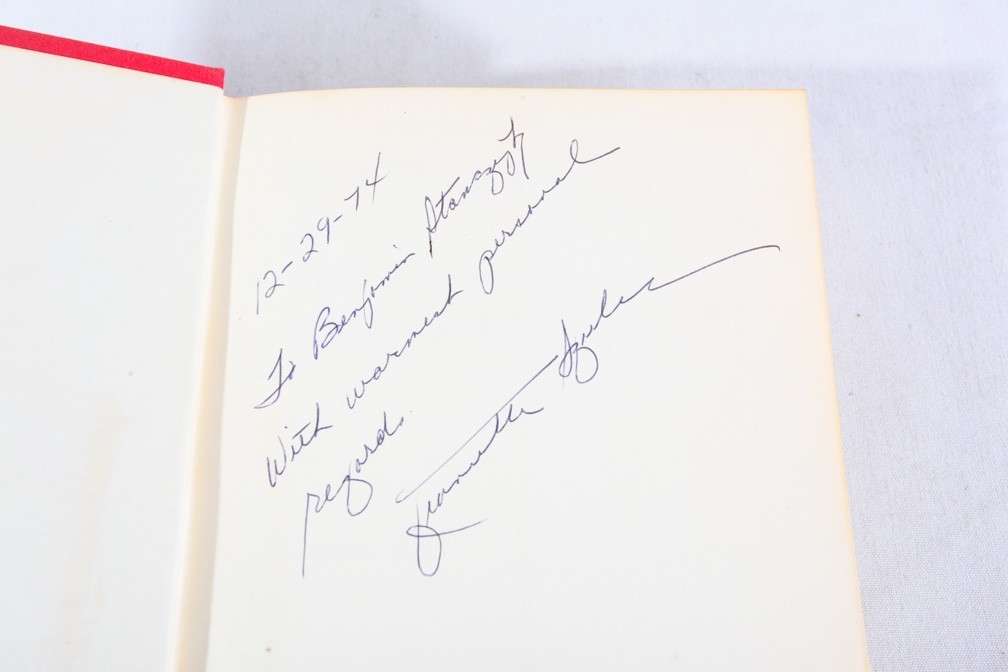 12-29-74
To Benjamin Stanczyk
With warmest personal
regards.